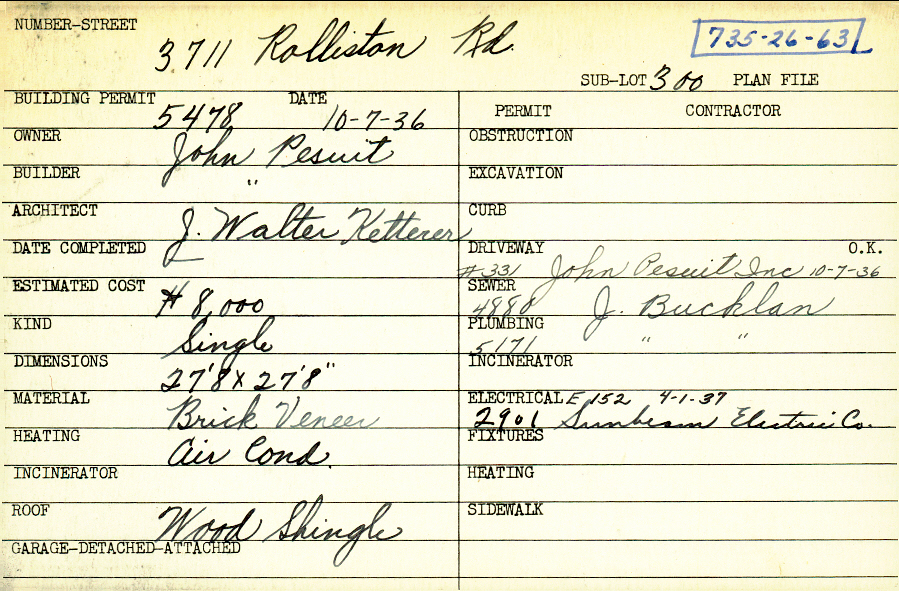 NUMBER-STREET
3711 Rolliston Rd.
735-26-63
SUB-LOT 300 PLAN FILE
BUILDING PERMIT 5478 DATE 10-7-36
PERMIT CONTRACTOR
OWNER John Pesuit
OBSTRUCTION
BUILDER "
EXCAVATION
ARCHITECT J. Walter Ketterer
CURB
DATE COMPLETED
DRIVEWAY O.K.
#331 John Pesuit Inc 10-7-36
ESTIMATED COST $8,000
SEWER
4880 J. Bucklan
KIND Single
PLUMBING
5171 " "
DIMENSIONS 27'8 X 27'8"
INCINERATOR
MATERIAL Brick Veneer
ELECTRICAL E 152 4-1-37
2901 Sunbeam Electric Co.
HEATING Air Cond.
FIXTURES
INCINERATOR
HEATING
ROOF Wood Shingle
SIDEWALK
GARAGE-DETACHED-ATTACHED